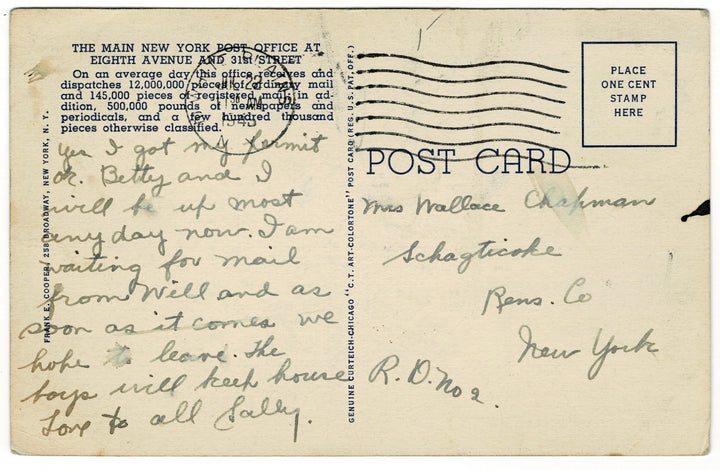 THE MAIN NEW YORK POST OFFICE AT
EIGHTH AVENUE AND 31ST STREET
On an average day this office receives and
dispatches 12,000,000 pieces of ordinary mail
and 145,000 pieces of registered mail, in ad-
dition, 500,000 pounds of newspapers and
periodicals, and a few hundred thousand
pieces otherwise classified.
1943
Yes I got my permit
or. Betty and I
will be up most
any day now. I am
waiting for mail
from Will and as
soon as it comes we
hope to leave. The
boys will keep house
Love to all Sally.
FRANK E. COOPER, 258 BROADWAY, NEW YORK, N. Y.
GENUINE CURTEICH-CHICAGO "C.T. ART-COLORTONE" POST CARD (REG. U.S. PAT. OFF.)
POST CARD
PLACE
ONE CENT
STAMP
HERE
Mrs Wallace Chapman
Schagticoke
Rens. Co
New York
R.D. No 2.